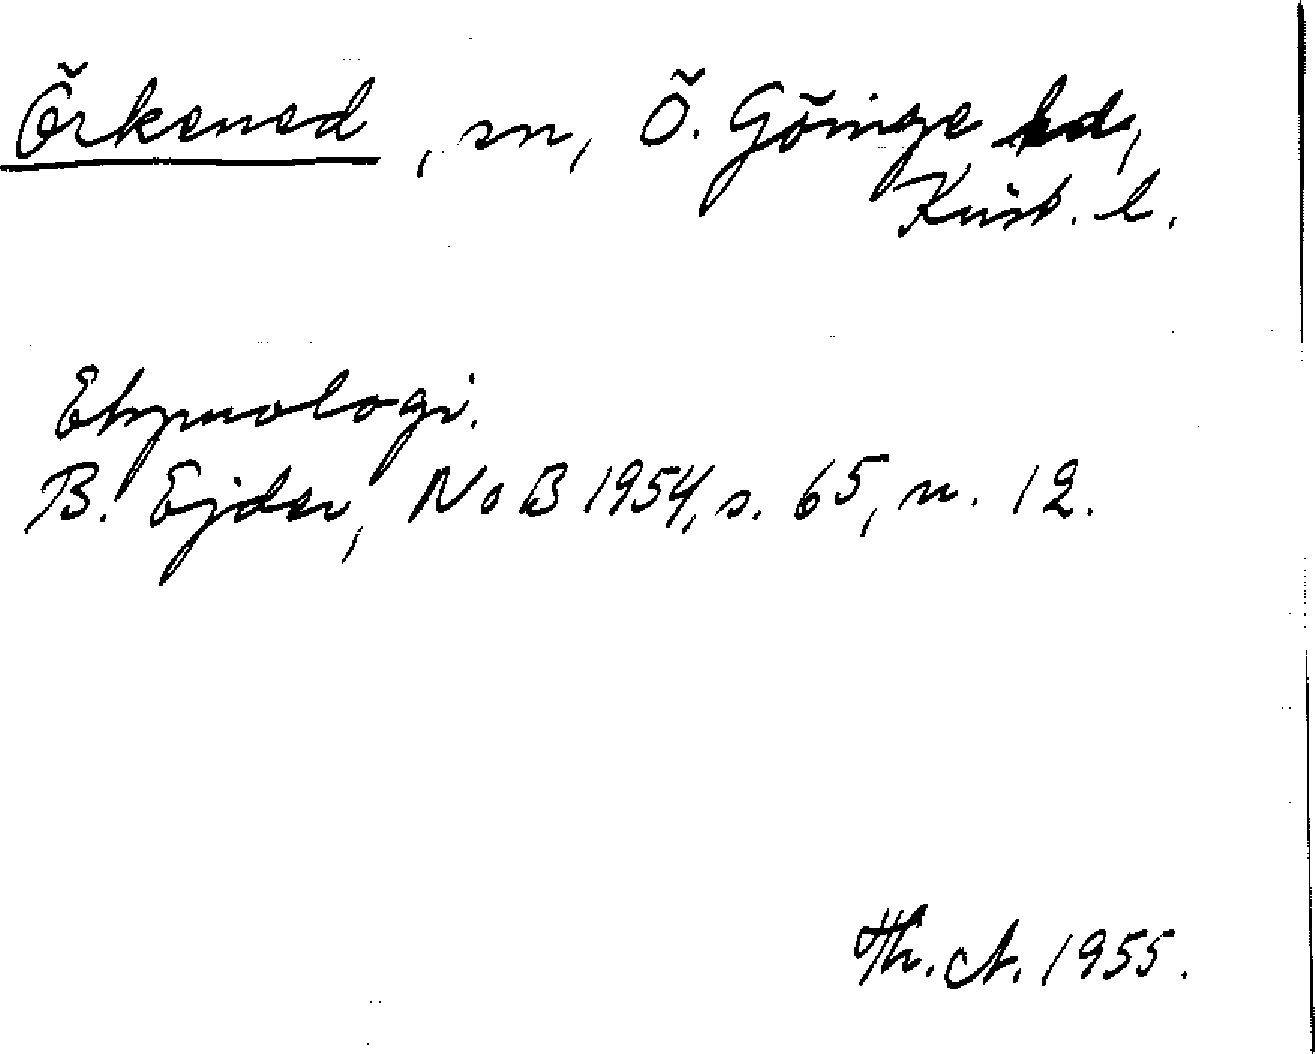 Örkened, sn, Ö. Göinge hd,
Krist. l.
Etymologi.
B. Ejder, NoB 1954, s. 65, n. 12.
Th. A. 1955.